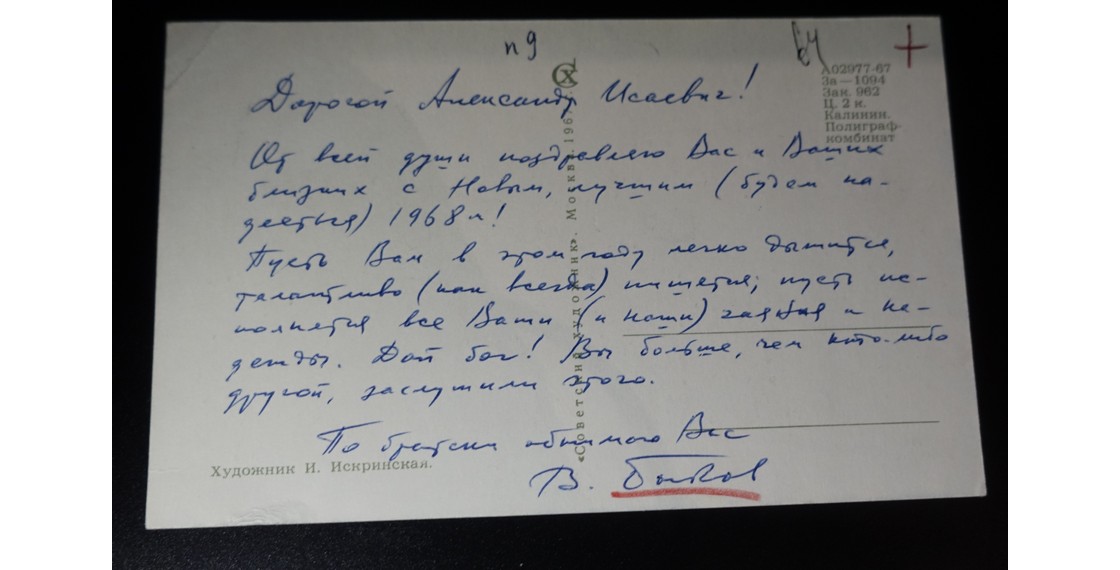 п9
64
+
А02977-67
За—1094
Зак. 962
Ц. 2 к.
Калинин.
Полиграф-
комбинат
Дорогой Александр Исаевич!
От всей души поздравляю Вас и Ваших
близких с Новым, лучшим (будем на-
деяться) 1968 г!
Пусть Вам в этом году легко дышится,
талантливо (как всегда) пишется; пусть ис-
полнятся все Ваши (и наши) чаяния и на-
дежды. Дай бог! Вы больше, чем кто-либо
другой, заслужили этого.
По братски обнимаю Вас
В. Быков
«Советский художник». Москва. 196
Художник И. Искринская.